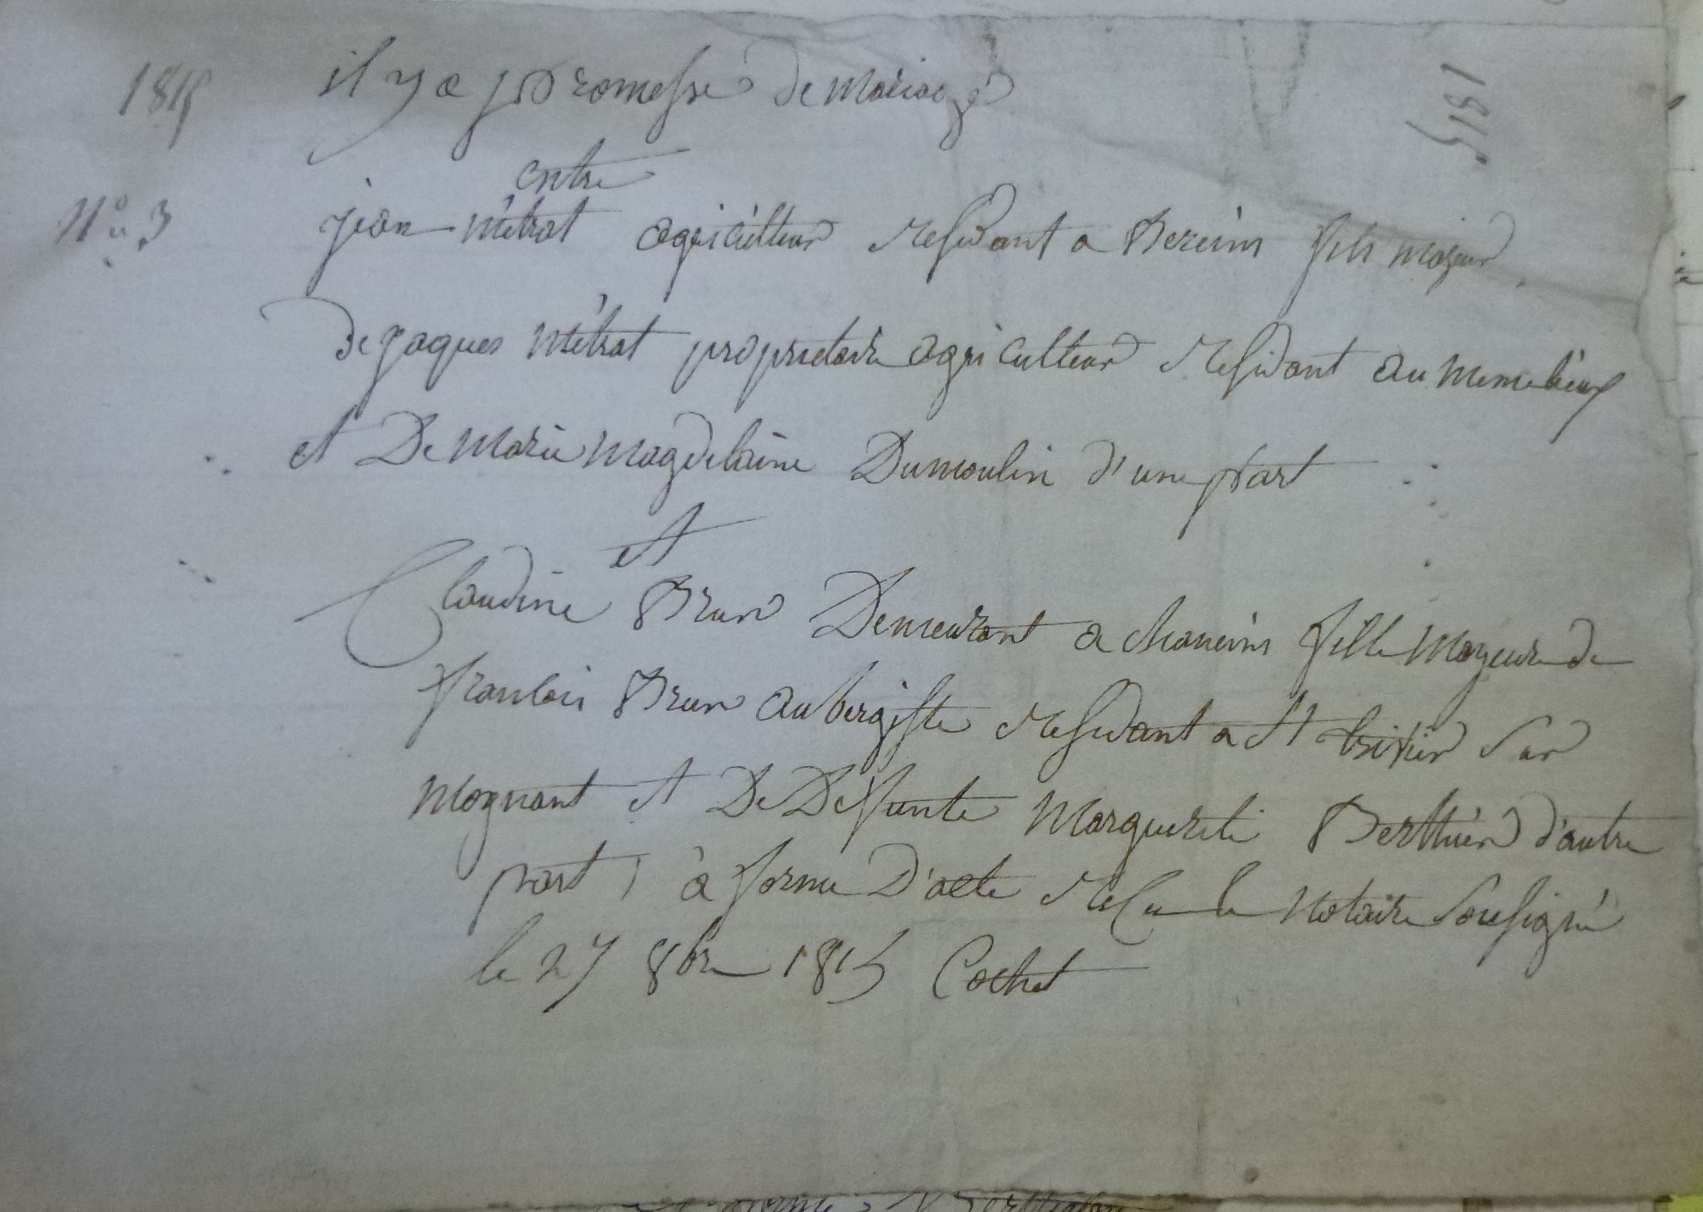 1815
il y a promesse de mariage
1815
entre
N.o 3
jean métrat agriculteur residant a Bereins fils majeur
de jaques métrat proprietaire agriculteur residant au meme lieux
et De marie magdelaine Dumoulin d'une part
et
Claudine Brun Demeurant a chaneins fille majeure de
francois Brun aubergiste residant a st trivier sur
mognant et De Defunte marguerite Berthier d'autre
part, à forme d'acte recu le notaire sousigné
le 27 8bre 1815 Cochet